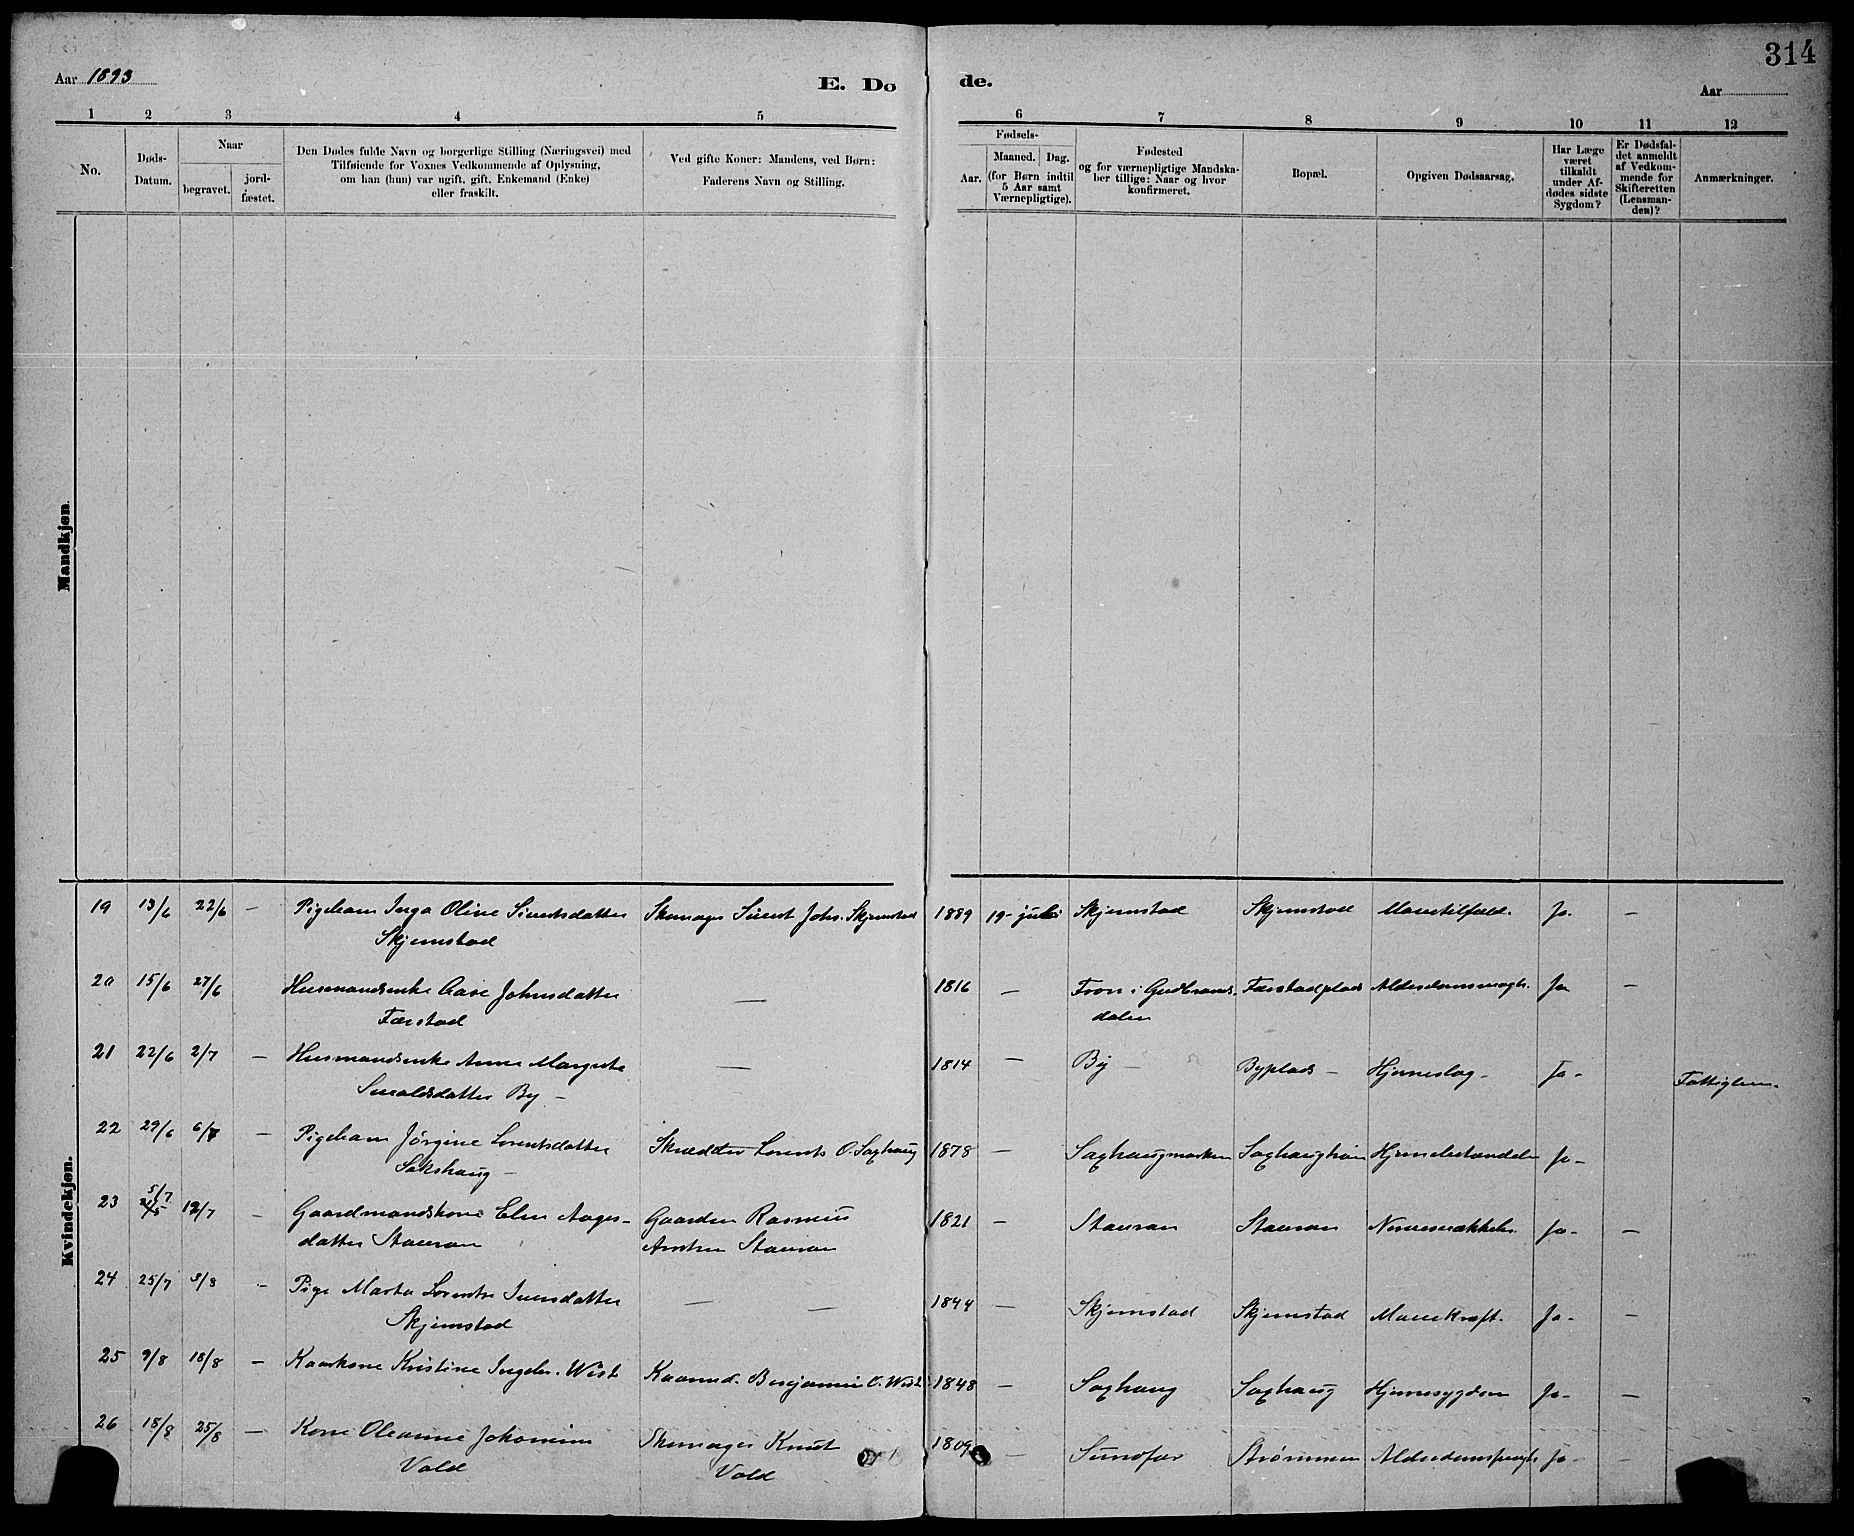 314
Aar 1893
E. Dø
de.
Aar
1 2 3 4 5 6 7 8 9 10 11 12
No.
Døds-
Datum.
Naar
begravet.
jord-
fæstet.
Den Dødes fulde Navn og borgerlige Stilling (Næringsvei) med
Tilføiende for Voxnes Vedkommende af Oplysning,
om han (hun) var ugift, gift, Enkemand (Enke)
eller fraskilt.
Ved gifte Koner: Mandens, ved Børn:
Faderens Navn og Stilling.
Fødsels-
Aar.
Maaned. Dag.
(for Børn indtil
5 Aar samt
Værnepligtige).
Fødested
og for værnepligtige Mandska-
ber tillige: Naar og hvor
konfirmeret.
Bopæl.
Opgiven Dødsaarsag.
Har Læge
været
tilkaldt
under Af-
dødes sidste
Sygdom?
Er Dødsfal-
det anmeldt
af Vedkom-
mende for
Skifteretten
(Lensman-
den)?
Anmærkninger.
Mandkjøn.
Kvindekjøn.
19 13/6 22/6 — Pigebarn Inga Oline Sivertsdatter Skomager Sivert Johs. Skjemstad 1889 19- juli Skjemstad Skjemstad Mavetilfæld. Ja. —
Skjemstad
20 15/6 27/6 Husmandsenke Aase Johnsdatter — 1816 — Fron i Gudbrands. Færstadplads Ja —
Færstad dalen
21 22/6 2/7 — Husmandsenke Anne Margrete — 1814 — By — Byplads — Hjerneslag — Ja -
By —
22 29/6 6/7 — Pigebarn Jørgine Lorentsdatter Skrædder Lorents O. Saxhaug 1878 — Saxhaugmarken Ja -
Sakshaug —
23 5/7 12/7 - Gaardmandskone Elen Aages- Gaardm Rasmus 1821 — Stavran Stavran Ja - —
datter Stavran Stavran
24 25/7 3/8 - Pige Marta Iversdatter — — 1844 — Skjemstad Skjemstad Mavekræft. Ja - —
Skjemstad
25 9/8 18/8 — Kristine Ingebr. Wist Benjamin O. Wist 1848 — Saxhaug Saxhaug Hjernesygdom Ja - —
26 18/8 25/8 — Kone Oleanne Skomager Knut 1809 — Strømmen Ja - —
Vold Vold